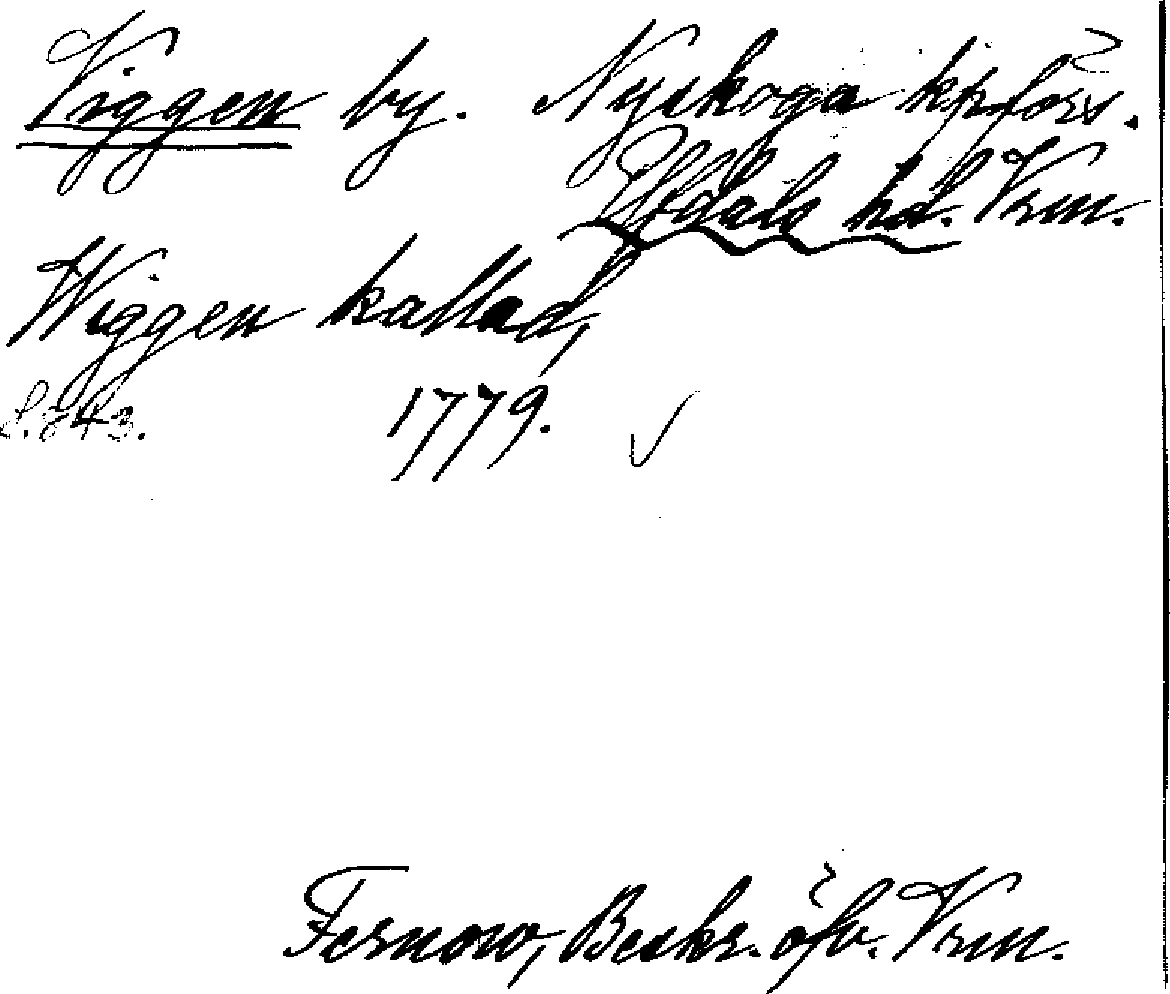 Viggen by. Nyskoga kpsförs.
Elfdals hd. Vrm.
Wiggen kallad,
S. 243. 1779. ✓
Fernow, Beskr. öfv. Vrm.